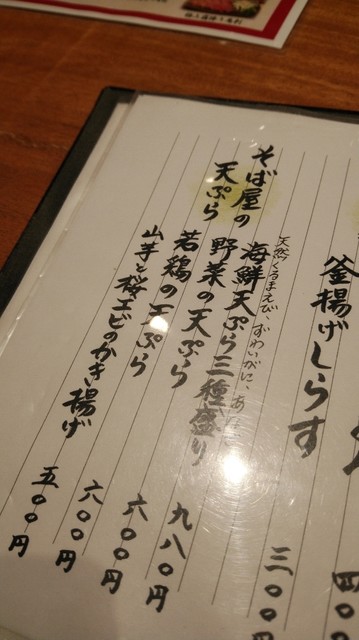 釜揚げしらす
三〇〇
そば屋の天ぷら
天然くるまえび、ずわいがに、あ
海鮮天ぷら三種盛り
九八〇円
野菜の天ぷら
六〇〇円
若鶏の天ぷら
六〇〇円
山芋と桜エビのかき揚げ
五〇〇円